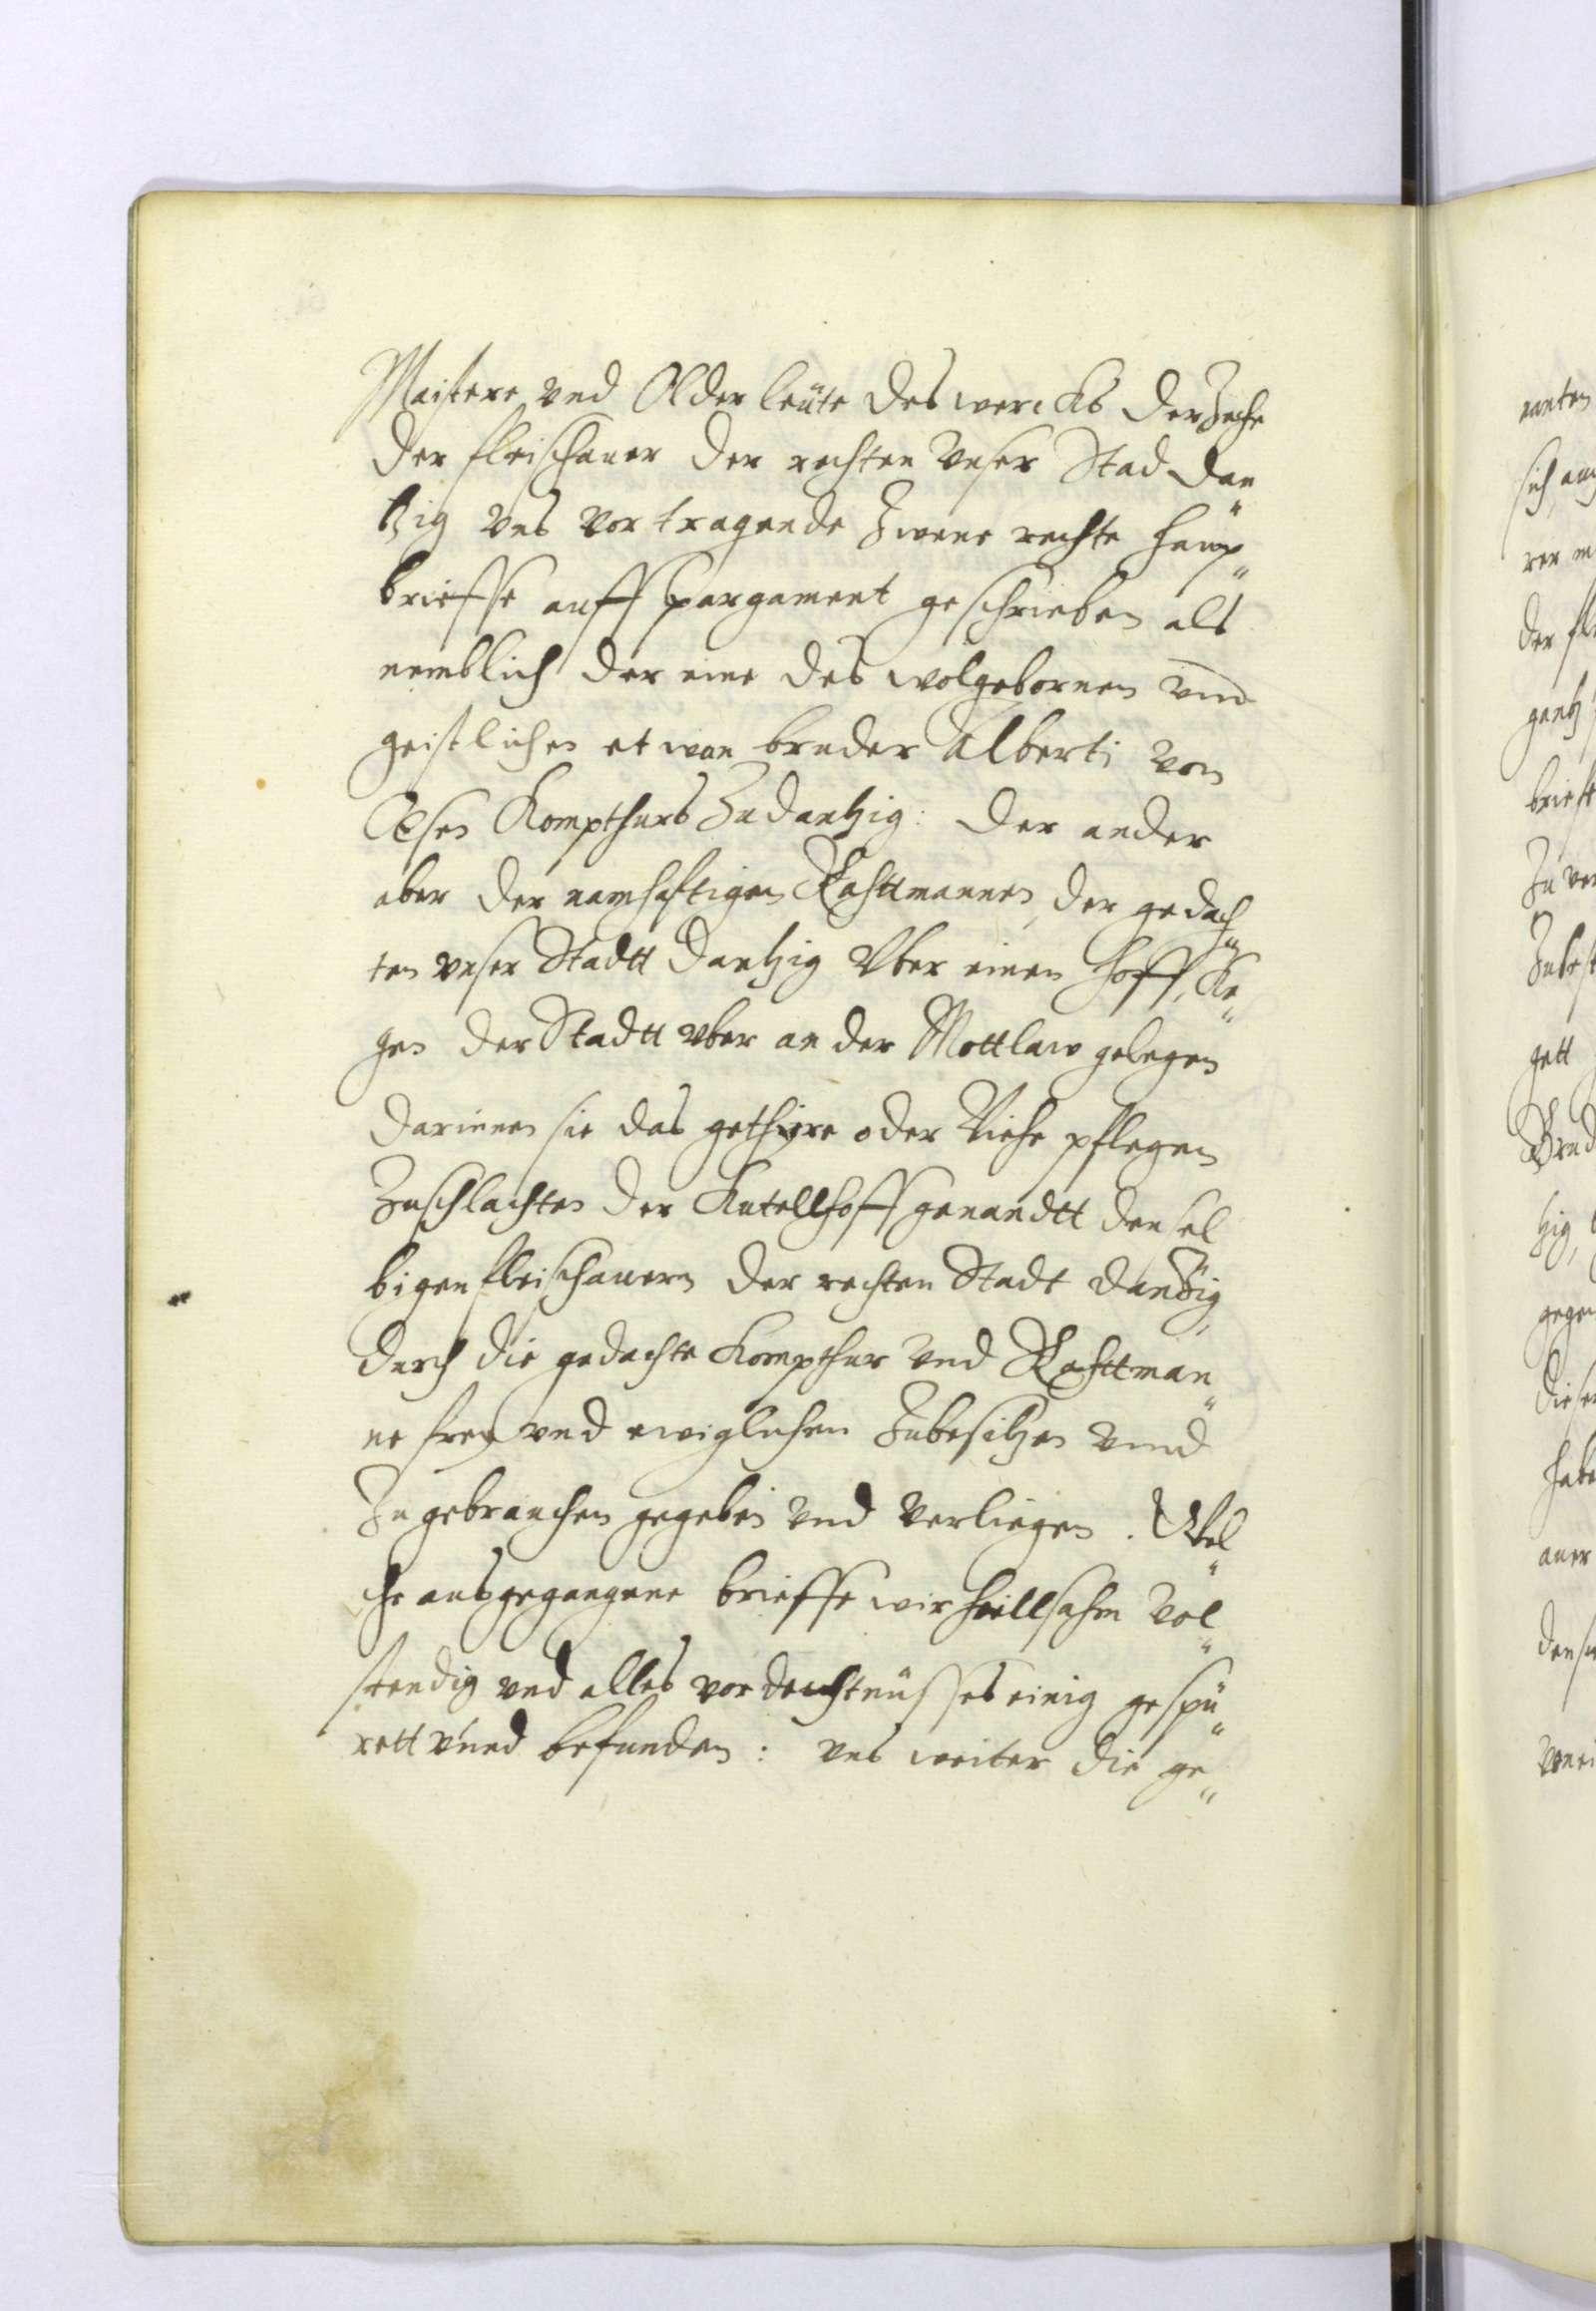 Maistere vnd Older leüte des wercks der Zeche
der fleischauer der rechten vnser Stad Dan„
tzig vns vortragende Zwene rechte haup„
brieffe auff pargament geschrieben als
nemblich der eine des wolgebornen vnd
geistlichen etwan bruder Alberti von
Kompthurs Zu dantzig: der ander
aber der namhaftigen Rahttmannen, der gedach„
ten vnser Stadtt Dantzig Vber einen hoff, Ke„
gen der Stadtt vber an der Mottlaw gelegen
darinnen sie das gethyre oder Viehe pflegen
Zuschlachten der Kutellhoff genandtt densel
bigen fleischauern der rechten Stadt Danzig
durch die gedachte Kompthur vnd Rahttman„
ne frey vnd ewiglichen Zubesitzen vnnd
Zu gebrauchen gegeben vnd verliegen. Wel„
che ausgegangene brieffe wir heillsahm vol„
stendig vnd alles vordechtnüsses einig gespü„
rett vnnd befunden: vns weiter die ge„
ranten
sich,
rer
der
gantz
brieffe
Zu
gett
tzig,
gegen
diese
habe
auer